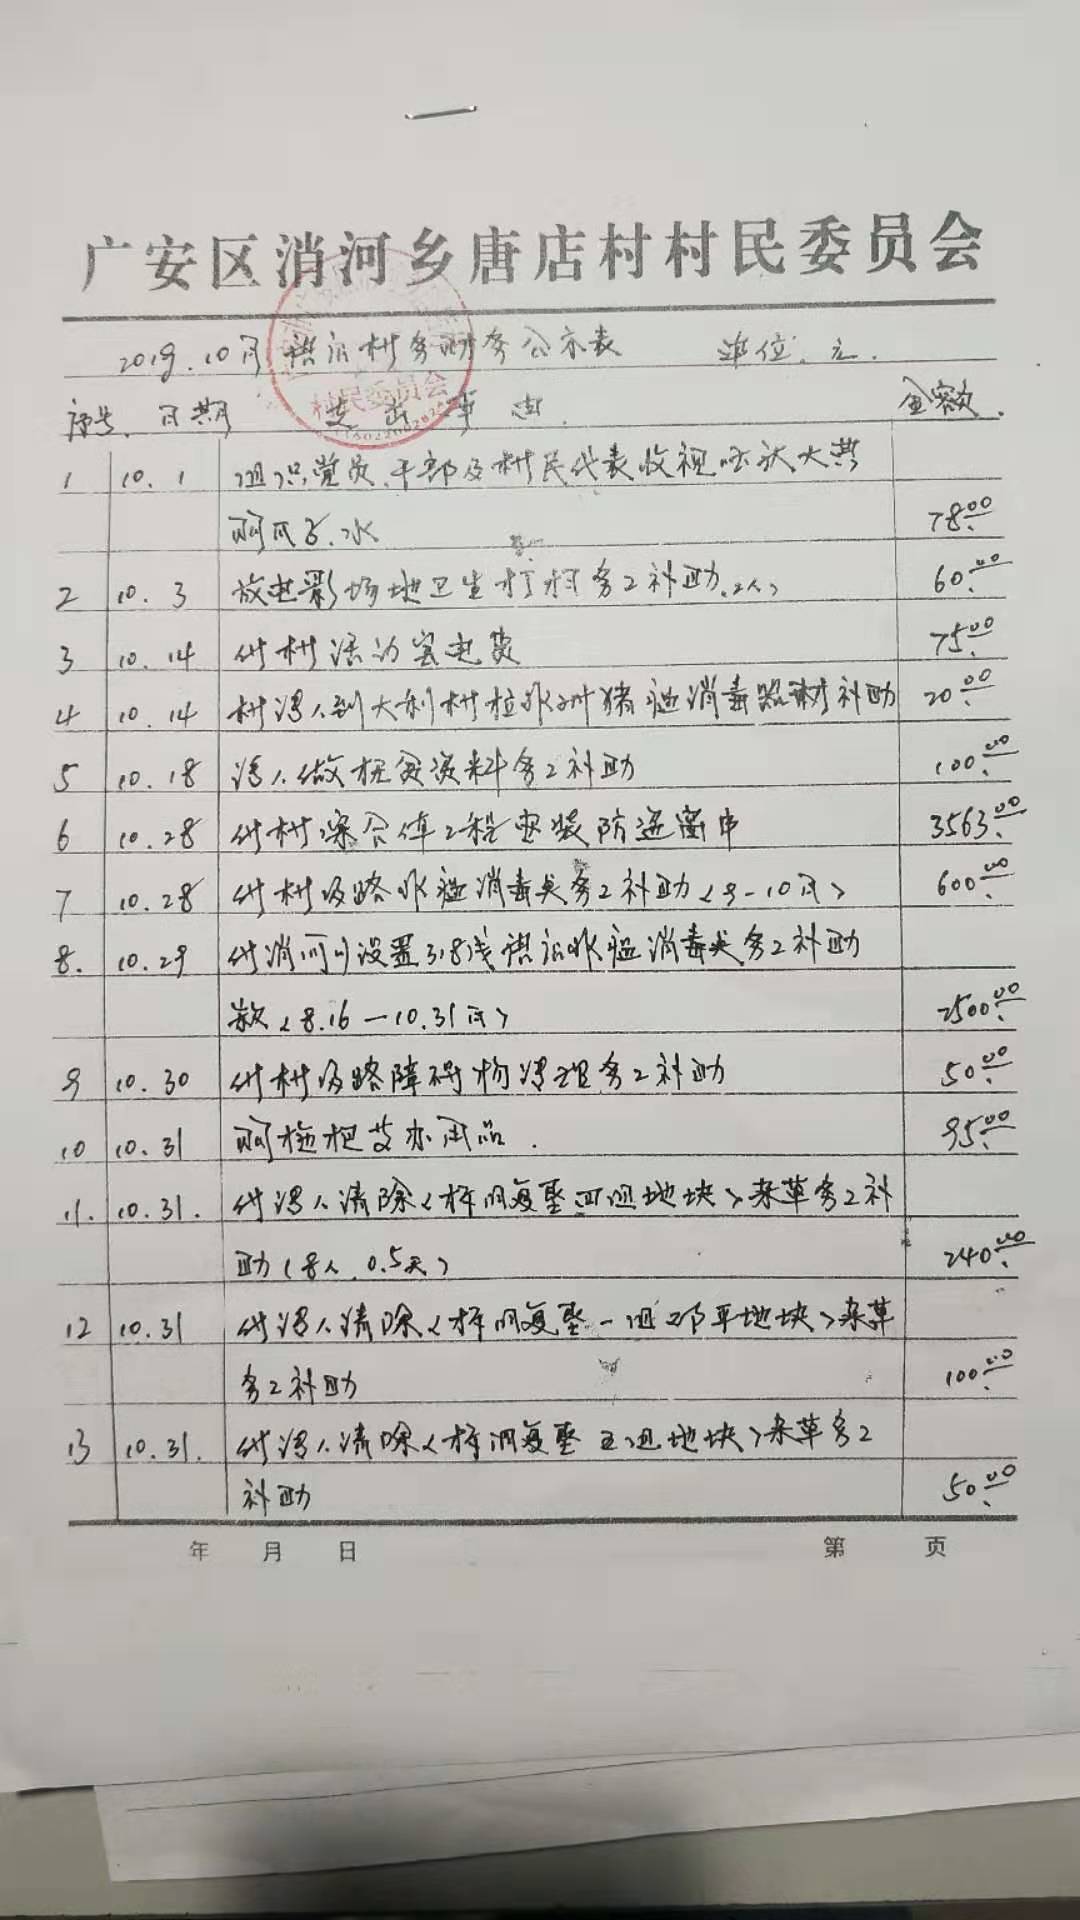 广安区消河乡唐店村村民委员会
2019.10月 唐店村务财务公示表 单位:元.
序号. 日期 支出事由. 金额.
村民委员会
1 10.1 组织党员、干部及村民代表收视庆大典
购瓜子.水 78.00
2 10.3 放电影场地卫生打扫务工补助.2人) 60.00
3 10.14 付村活动室电费 75.00
4 10.14 村请人到大利村拉非洲猪瘟消毒器材补助 20.00
5 10.18 请人做桩资料务工补助 100.00
6 10.28 付村综合体工程安装防盗窗巾 3563.00
7 10.28 付村级路非瘟消毒点务工补助(9-10月) 600.00
8. 10.29 付消河乡设置318线唐店非瘟消毒点务工补助
款(8.16—10.31日) 2500.00
9 10.30 付村级路障碍物清理务工补助 50.00
10 10.31 购拖把及办用品. 95.00
11. 10.31. 付请人清除(拆旧复垦四组地块)杂草务工补
助(8人.0.5天) 240.00
12 10.31 付请人清除(拆旧复垦一组邓平地块)杂草
务工补助 100.00
13 10.31. 付请人清除(拆旧复垦五组地块)杂草务工
补助 50.00
年 月 日 第 页